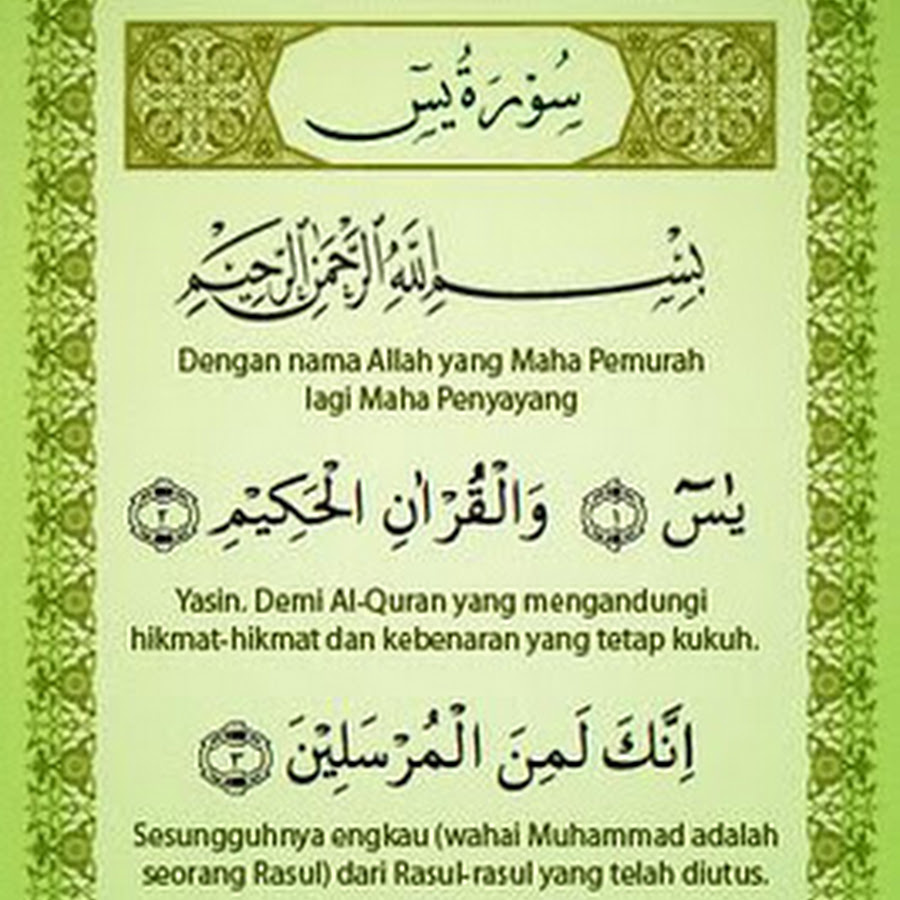 سُوْرَةُ يٰسٓ
بِسْمِ اللّٰهِ الرَّحْمٰنِ الرَّحِيْمِ
Dengan nama Allah yang Maha Pemurah
lagi Maha Penyayang
يٰسٓ ١ وَالْقُرْاٰنِ الْحَكِيْمِ ٢
Yasin. Demi Al-Quran yang mengandungi
hikmat-hikmat dan kebenaran yang tetap kukuh.
اِنَّكَ لَمِنَ الْمُرْسَلِيْنَ ٣
Sesungguhnya engkau (wahai Muhammad adalah
seorang Rasul) dari Rasul-rasul yang telah diutus.